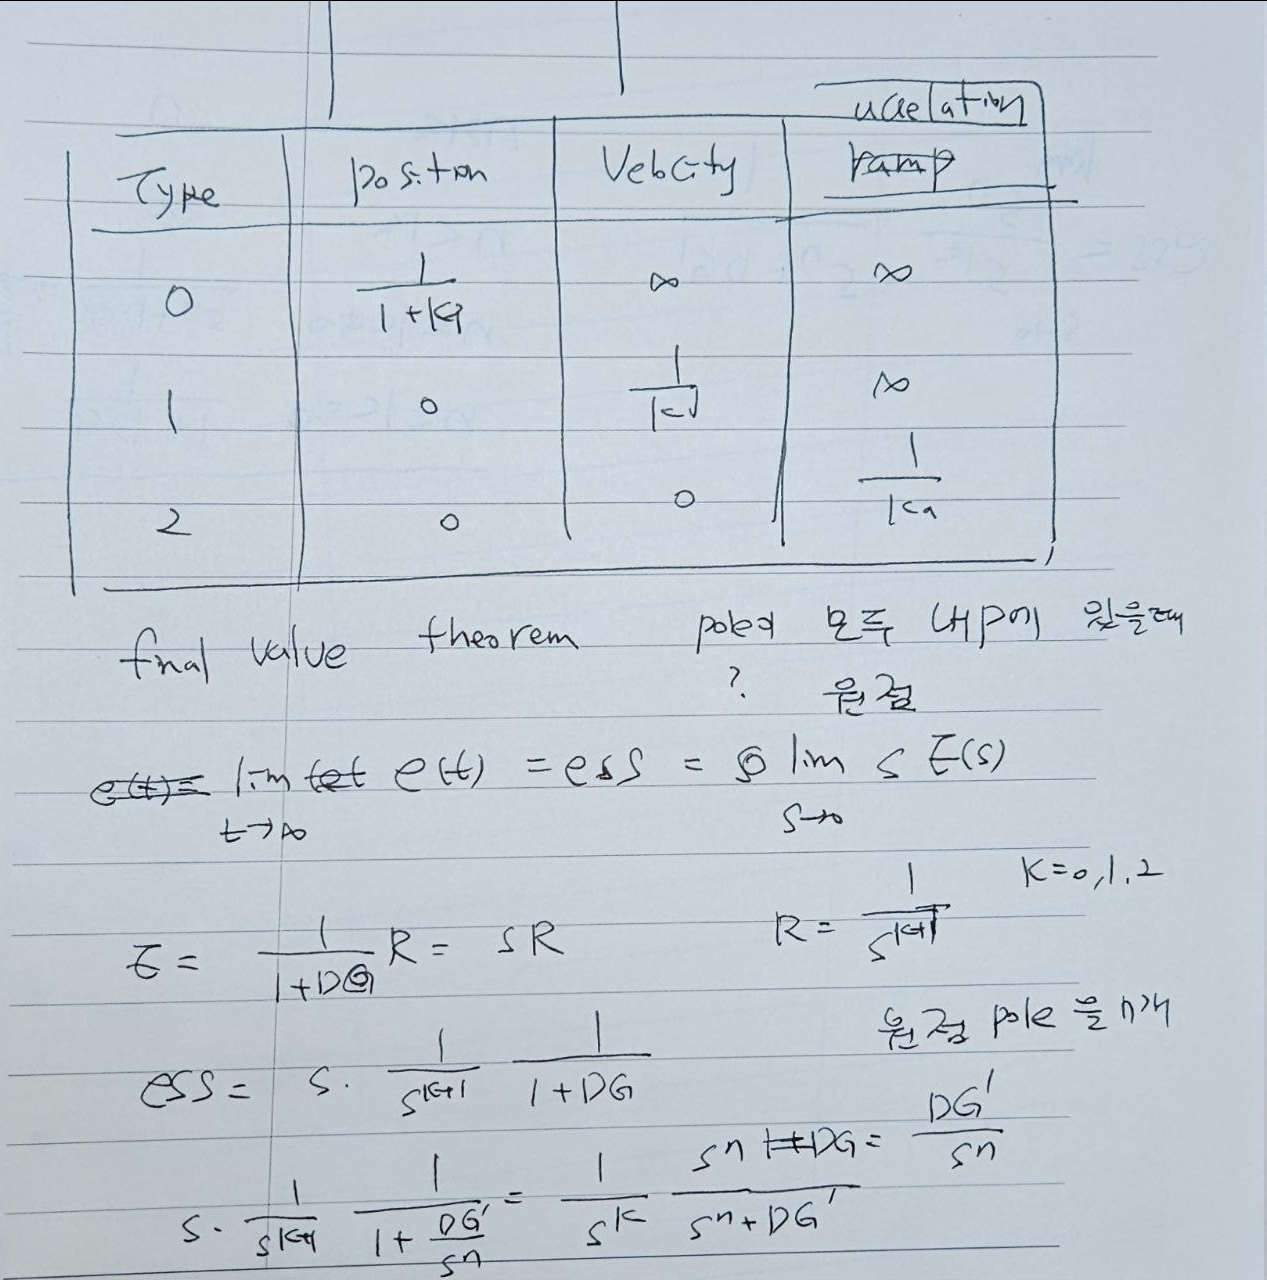 accelation
Type position Velocity ramp
0 1/(1+Kp) ∞ ∞
1 0 1/Kv ∞
2 0 0 1/Ka
final value theorem pole이 모두 LHP에 있을때
? 원점
e(t)= lim e(t) = ess = lim s E(s)
t→∞ s→0
E = 1/(1+DG) R = SR R = 1/s^(k+1) K=0,1,2
원점 pole을 n개
ess = s · 1/s^(k+1) 1/(1+DG)
DG = DG'/s^n
s · 1/s^(k+1) 1/(1+DG'/s^n) = 1/s^k s^n/(s^n+DG')